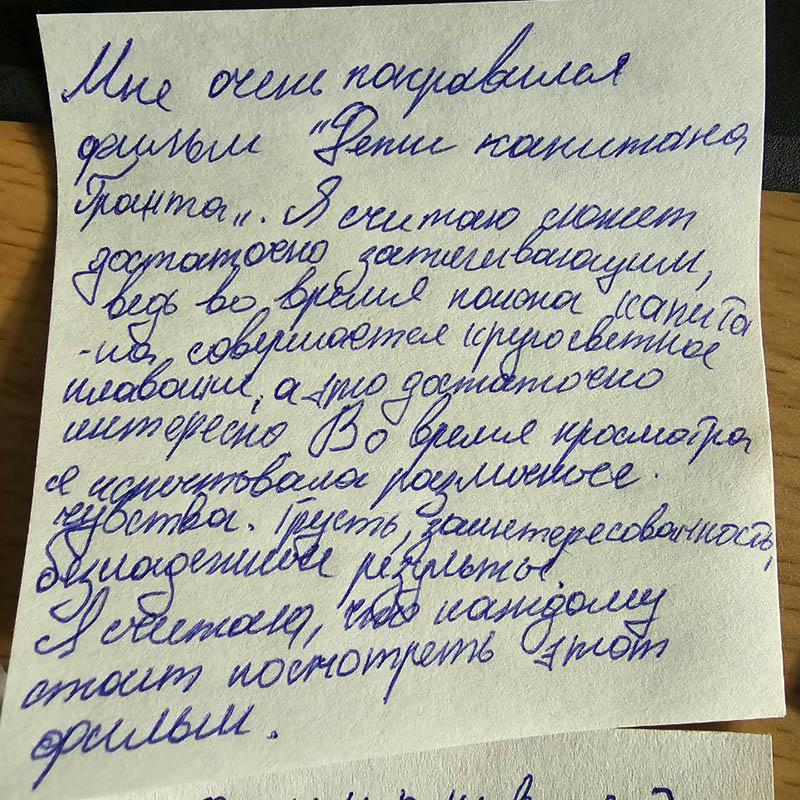 Мне очень понравился
фильм "Дети капитана
Гранта". Я считаю сюжет
достаточно затягивающим,
ведь во время поиска капита
-на, совершается кругосветное
плавание, а это достаточно
интересно Во время просмотра
я испытывала различные
чувства. Грусть, заинтересованность,
безнадежные
Я считаю, что каждому
стоит посмотреть этот
фильм.